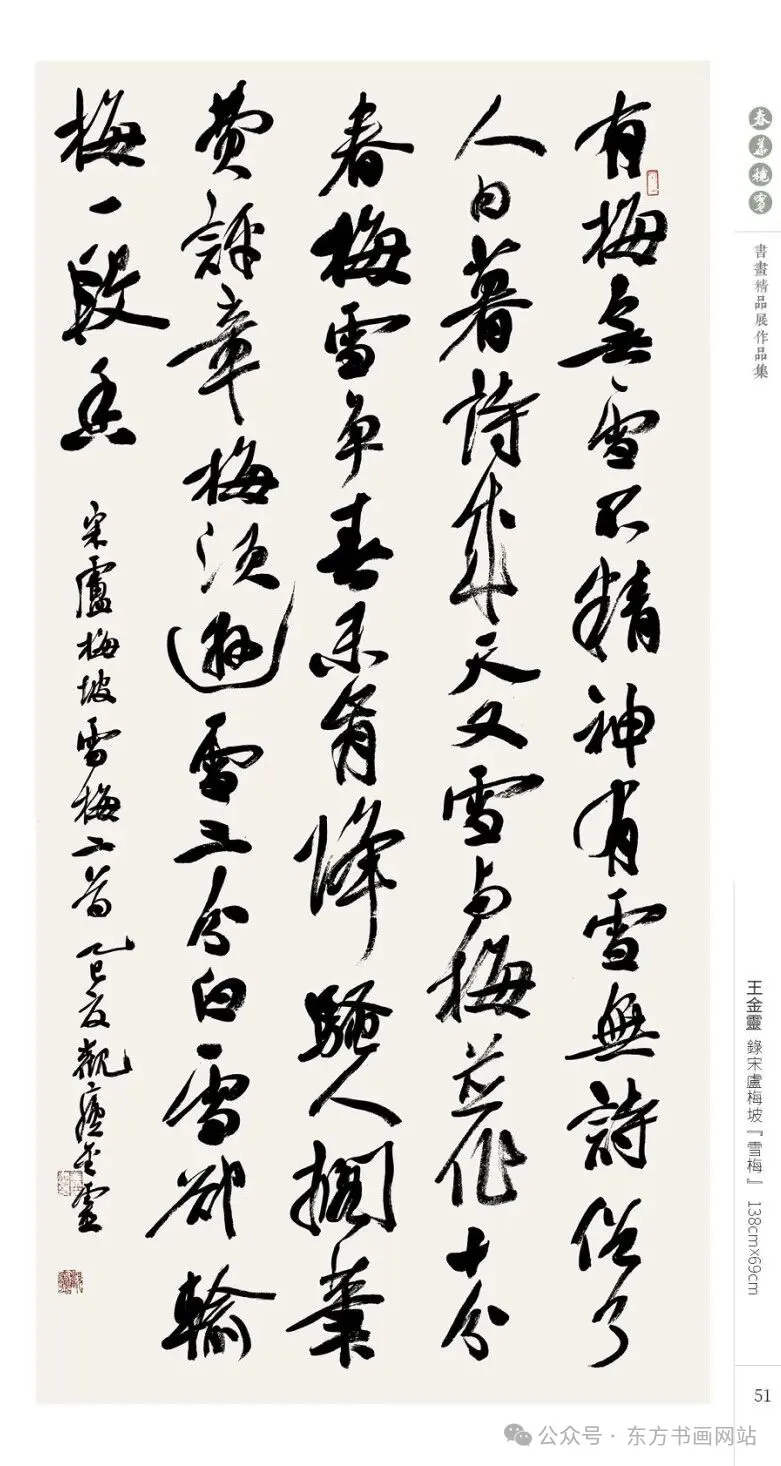 春華穐實
書畫精品展作品集
有梅無雪不精神有雪無詩俗了
人日暮詩成天又雪与梅並作十分
春梅雪争春未肯降騷人擱筆
費評章梅須遜雪三分白雪卻輸
梅一段香
宋盧梅坡雪梅二首 乙巳夏觀金靈
王金靈 錄宋盧梅坡『雪梅』 138cm×69cm
51
公众号 · 东方书画网站